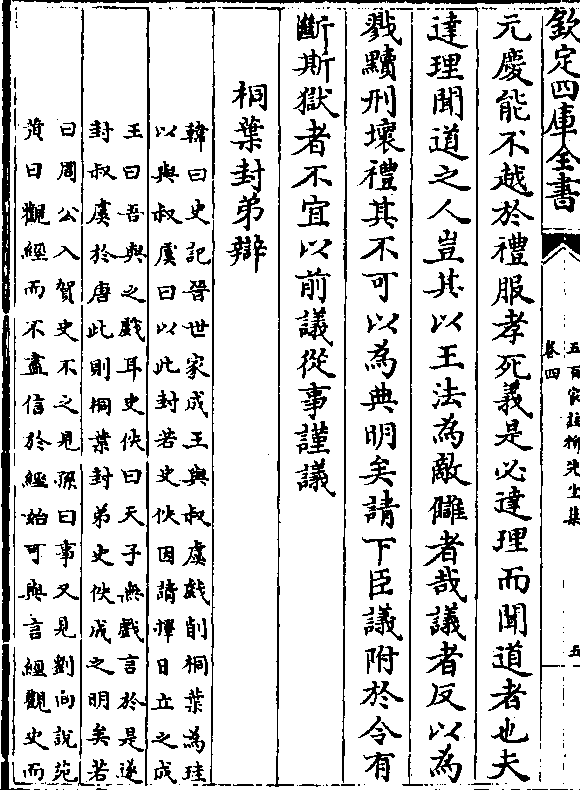 欽定四庫全書
五百家註柳先生集
卷四
五
元慶能不越於禮服孝死義是必達理而聞道者也夫
達理聞道之人豈其以王法為敵讎者哉議者反以為
戮黷刑壞禮其不可以為典明矣請下臣議附於令有
斷斯獄者不宜以前議從事謹議
桐葉封弟辯
韓曰史記晉世家成王與叔虞戲削桐葉為珪
以與叔虞曰以此封若史佚因請擇日立之成
王曰吾與之戲耳史佚曰天子無戲言於是遂
封叔虞於唐此則桐葉封弟史佚成之明矣若
曰周公入賀史不之見孫曰事又見劉向說苑
黃曰觀經而不盡信於經始可與言經觀史而